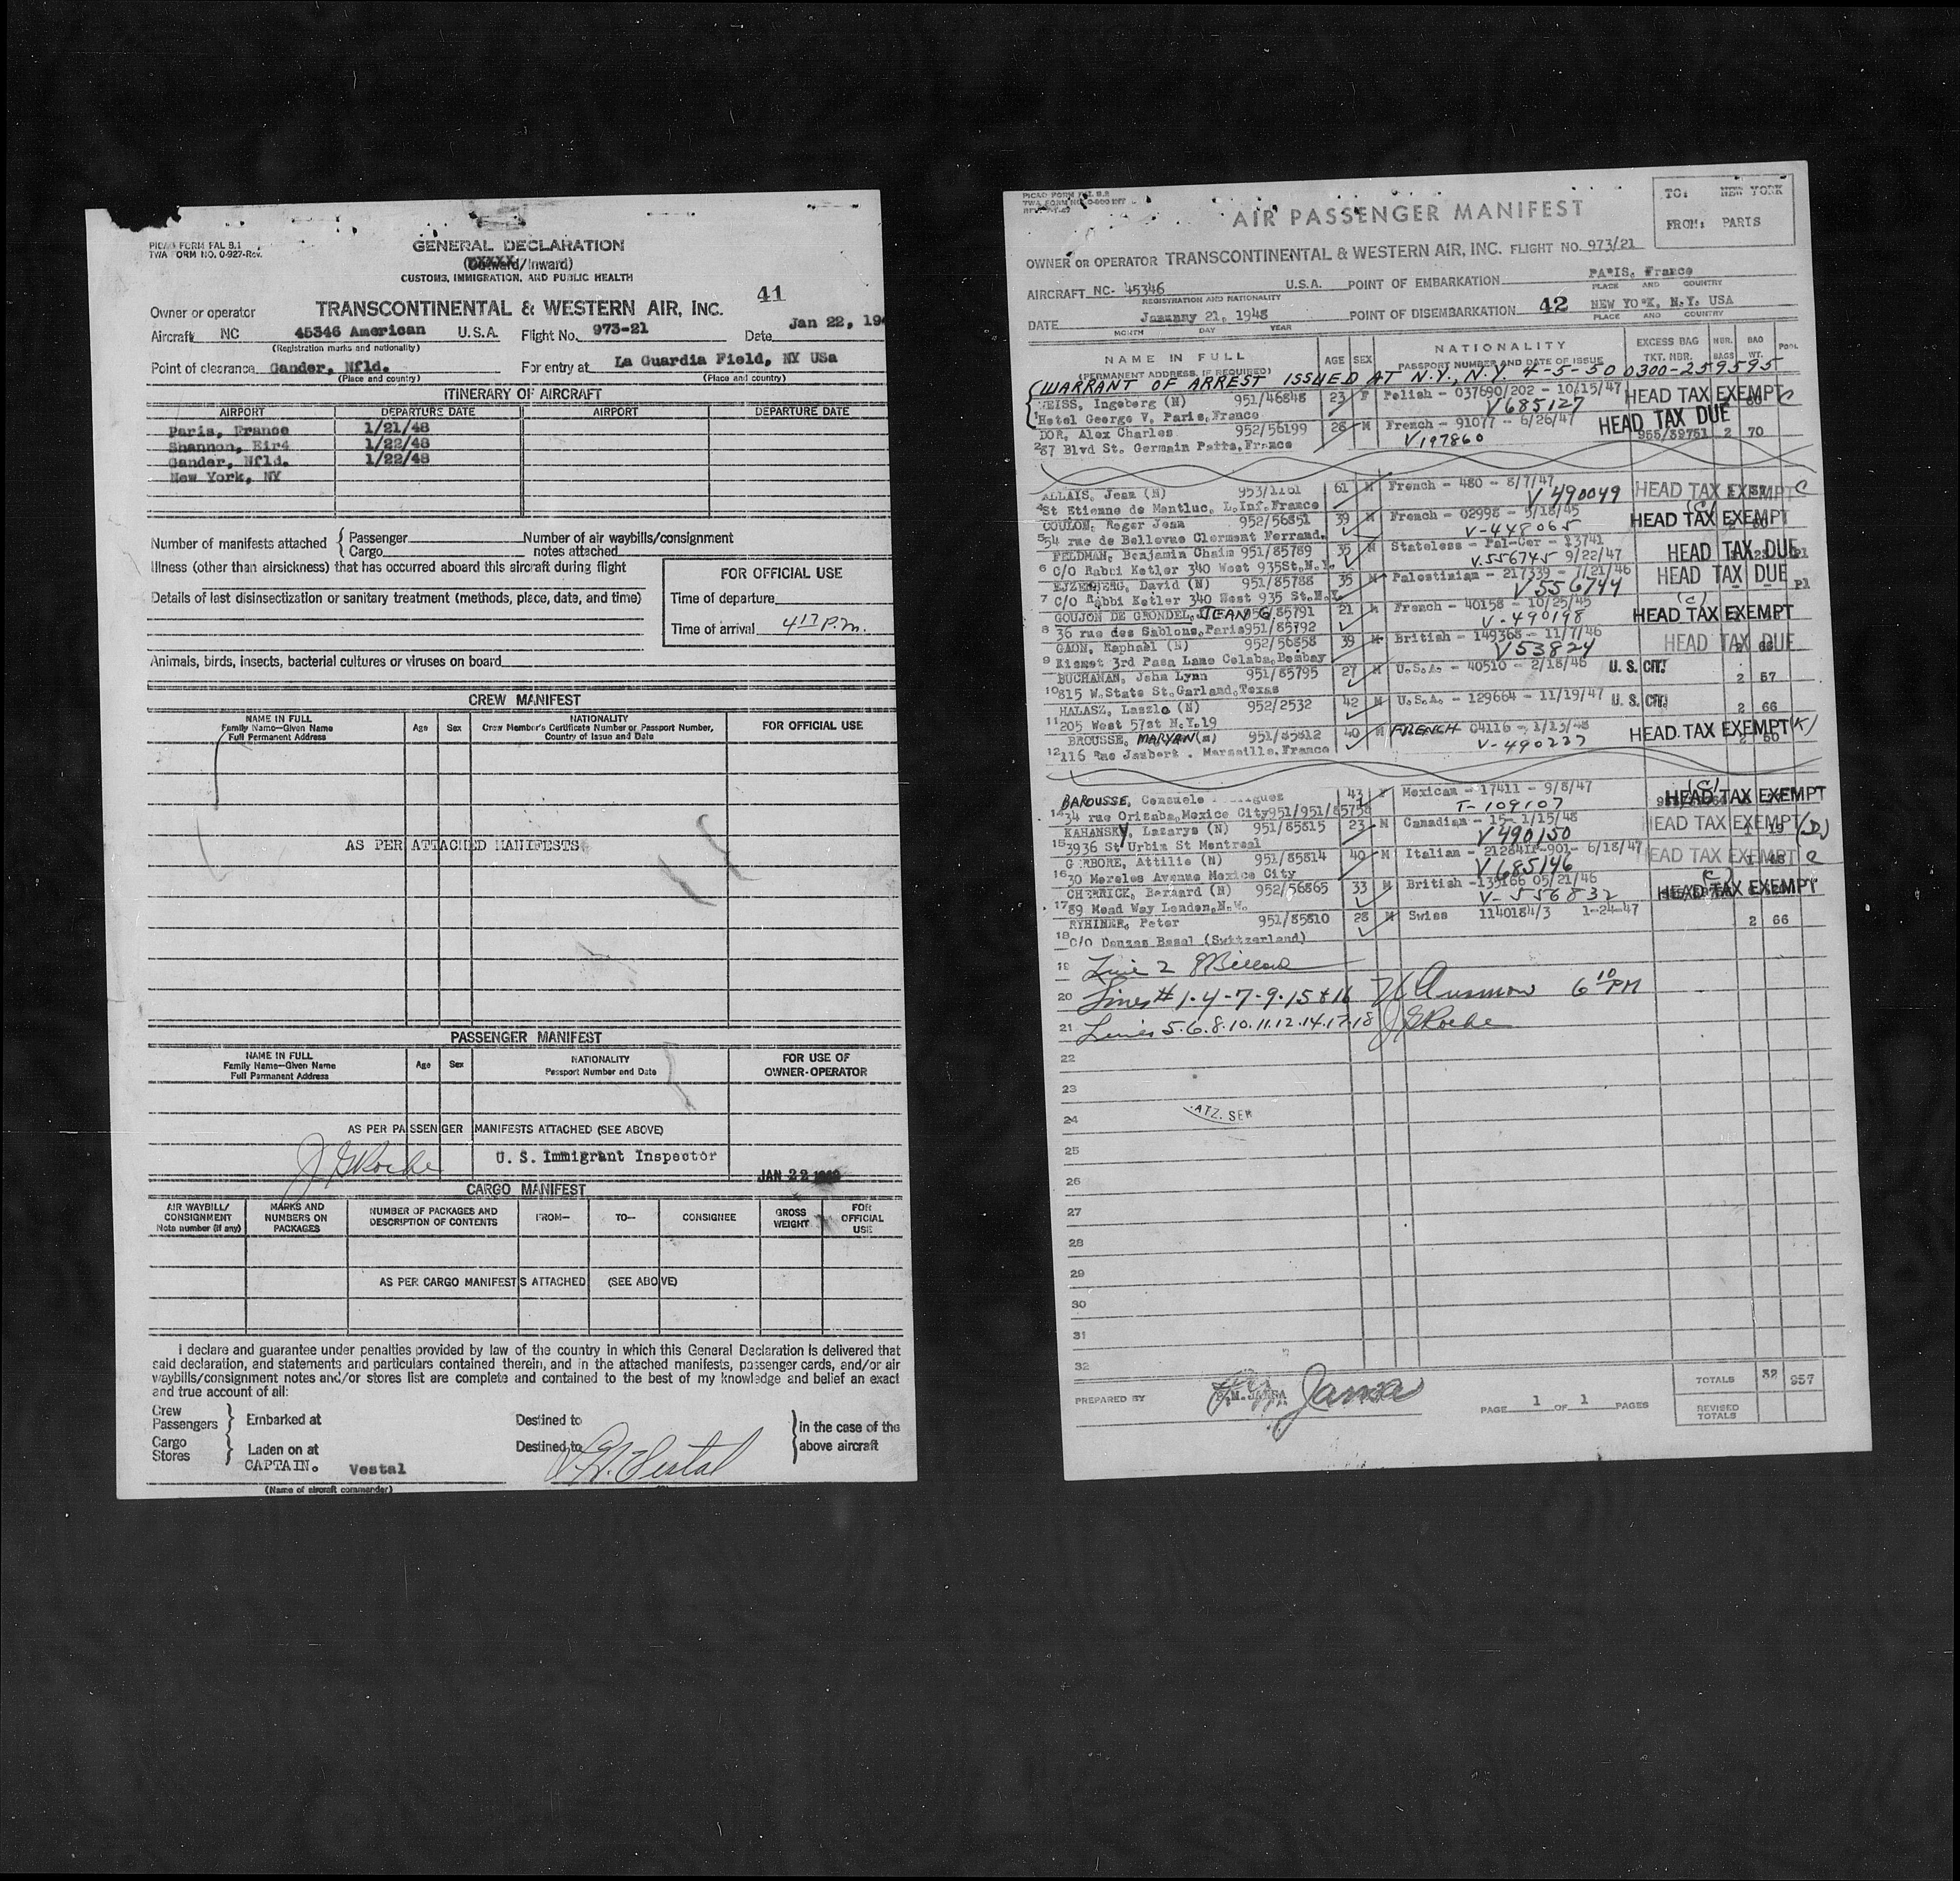 PICAO FORM FAL 8.1
TWA FORM NO. 0-927-Rev.
GENERAL DECLARATION
(Outward/Inward)
CUSTOMS, IMMIGRATION, AND PUBLIC HEALTH
41
Owner or operator TRANSCONTINENTAL & WESTERN AIR, INC.
Aircraft NC 45346 American U.S.A. Flight No. 973-21 Date Jan 22, 194
(Registration marks and nationality)
Point of clearance Gander, Nfld. For entry at La Guardia Field, NY USa
(Place and country) (Place and country)
ITINERARY OF AIRCRAFT
AIRPORT DEPARTURE DATE AIRPORT DEPARTURE DATE
Paris, France 1/21/48
Shannon, Eir4 1/22/48
Gander, Nfld. 1/22/48
New York, NY
Number of manifests attached { Passenger Number of air waybills/consignment
Cargo notes attached
Illness (other than airsickness) that has occurred aboard this aircraft during flight
FOR OFFICIAL USE
Details of last disinsectization or sanitary treatment (methods, place, date, and time)
Time of departure
Time of arrival 4 17 P.m.
Animals, birds, insects, bacterial cultures or viruses on board
CREW MANIFEST
NAME IN FULL Age Sex NATIONALITY FOR OFFICIAL USE
Family Name—Given Name Crew Member's Certificate Number or Passport Number,
Full Permanent Address Country of Issue and Date
AS PER ATTACHED MANIFESTS
PASSENGER MANIFEST
NAME IN FULL Age Sex NATIONALITY FOR USE OF
Family Name—Given Name Passport Number and Date OWNER-OPERATOR
Full Permanent Address
AS PER PASSENGER MANIFESTS ATTACHED (SEE ABOVE)
J G Roche U. S. Immigrant Inspector
JAN 22
CARGO MANIFEST
AIR WAYBILL/ MARKS AND NUMBER OF PACKAGES AND FROM— TO— CONSIGNEE GROSS FOR
CONSIGNMENT NUMBERS ON DESCRIPTION OF CONTENTS WEIGHT OFFICIAL
Note number (if any) PACKAGES USE
AS PER CARGO MANIFESTS ATTACHED (SEE ABOVE)
I declare and guarantee under penalties provided by law of the country in which this General Declaration is delivered that
said declaration, and statements and particulars contained therein, and in the attached manifests, passenger cards, and/or air
waybills/consignment notes and/or stores list are complete and contained to the best of my knowledge and belief an exact
and true account of all:
Crew
Passengers } Embarked at Destined to
Cargo
Stores } Laden on at Destined to } in the case of the above aircraft
CAPTAIN. Vestal Vestal
(Name of aircraft commander)
PICAO FORM FAL 8.2
AIR PASSENGER MANIFEST
TO: NEW YORK
FROM: PARIS
OWNER OR OPERATOR TRANSCONTINENTAL & WESTERN AIR, INC. FLIGHT NO. 973/21
AIRCRAFT NC- 45346 U.S.A. POINT OF EMBARKATION PARIS, France
REGISTRATION AND NATIONALITY PLACE AND COUNTRY
DATE January 21, 1948 POINT OF DISEMBARKATION 42 NEW YORK, N.Y. USA
MONTH DAY YEAR PLACE AND COUNTRY
NAME IN FULL AGE SEX NATIONALITY EXCESS BAG NBR. BAG POOL
(PERMANENT ADDRESS, IF REQUIRED) PASSPORT NUMBER AND DATE OF ISSUE TKT. NBR. BAGS WT.
(WARRANT OF ARREST ISSUED AT N.Y., N.Y. 4-5-50 0300-259595
WEISS, Ingeberg (N) 951/46848 23 F Polish - 037690/202 - 10/15/47 HEAD TAX EXEMPT C
1 Hotel George V, Paris, France V685127
DOR, Alex Charles 952/56199 28 M French - 91077 - 6/26/47 HEAD TAX DUE
2 87 Blvd St. Germain Paris, France V197860 955/59751 2 70
ALLAIS, Jean (N) 953/1161 61 M French - 480 - 8/7/47 HEAD TAX EXEMPT C
4 St Etienne de Montluc, L.Inf.France V 490049
COULON, Roger Jean 952/56851 39 M French - 02998 - 5/18/45 (C) HEAD TAX EXEMPT
5 54 rue de Bellevue Clermont Ferrand. V-448065
FELDMAN, Benjamin Chaim 951/85789 35 M Stateless - Pal-Cer - 13741 HEAD TAX DUE
6 C/O Rabbi Ketler 340 West 935St.N.Y. V.556745 9/22/47
EJZENBERG, David (N) 951/85788 35 M Palestinian - 217339 - 7/21/46 HEAD TAX DUE Pl
7 C/O Rabbi Ketler 340 West 935 St.N.Y. V556744
GOUJON DE GRONDEL, JEAN G/85791 21 M French - 40158 - 10/25/45 (C) HEAD TAX EXEMPT
8 36 rue des Sablons, Paris 951/85792 V-490198
GAON, Raphael (N) 952/56858 39 M British - 149368 - 11/7/46 HEAD TAX DUE
9 Kismet 3rd Pasa Lane Colaba, Bombay V53824
BUCHANAN, John Lynn 951/85795 27 M U.S.A. - 40510 - 2/18/46 U. S. CIT. 2 57
10 815 W.State St.Garland, Texas
HALASZ, Laszlo (N) 952/2532 42 M U.S.A. - 129664 - 11/19/47 U. S. CIT. 2 66
11 205 West 57st N.Y.19
BROUSSE, MARYAN(N) 951/85812 40 M FRENCH 04116 - 1/13/48 HEAD TAX EXEMPT (K)
12 116 Rue Jaubert . Marseille, France V-490227
BAROUSSE, Consuelo 43 F Mexican - 17411 - 9/8/47 (C) HEAD TAX EXEMPT
14 34 rue Orizaba, Mexico City 951/951/85758 T-109107
KAHANSKY, Lazarys (N) 951/85815 23 M Canadian - 15- 1/15/48 HEAD TAX EXEMPT (D)
15 3936 St Urbin St Montreal V490150
GERBORE, Attilio (N) 951/85814 40 M Italian - 212841P-901- 6/18/47 HEAD TAX EXEMPT C
16 30 Morelos Avenue Mexico City V685146
CHERRICK, Bernard (N) 952/56865 33 M British -135166 05/21/46 (C) HEAD TAX EXEMPT
17 89 Mead Way London, N.W. V-556832
RYHINER, Peter 951/85810 28 M Swiss 1140184/3 1-24-47 2 66
18 C/O Danzas Basel (Switzerland)
19 Line 2
20 Lines # 1-4-7-9-15 & 16 6 10 PM
21 Lines 5.6.8.10.11.12.14.17.18 J G Roche
22
23
24
25
26
27
28
29
30
31
32
PREPARED BY Jansa PAGE 1 OF 1 PAGES TOTALS 32 957
REVISED TOTALS